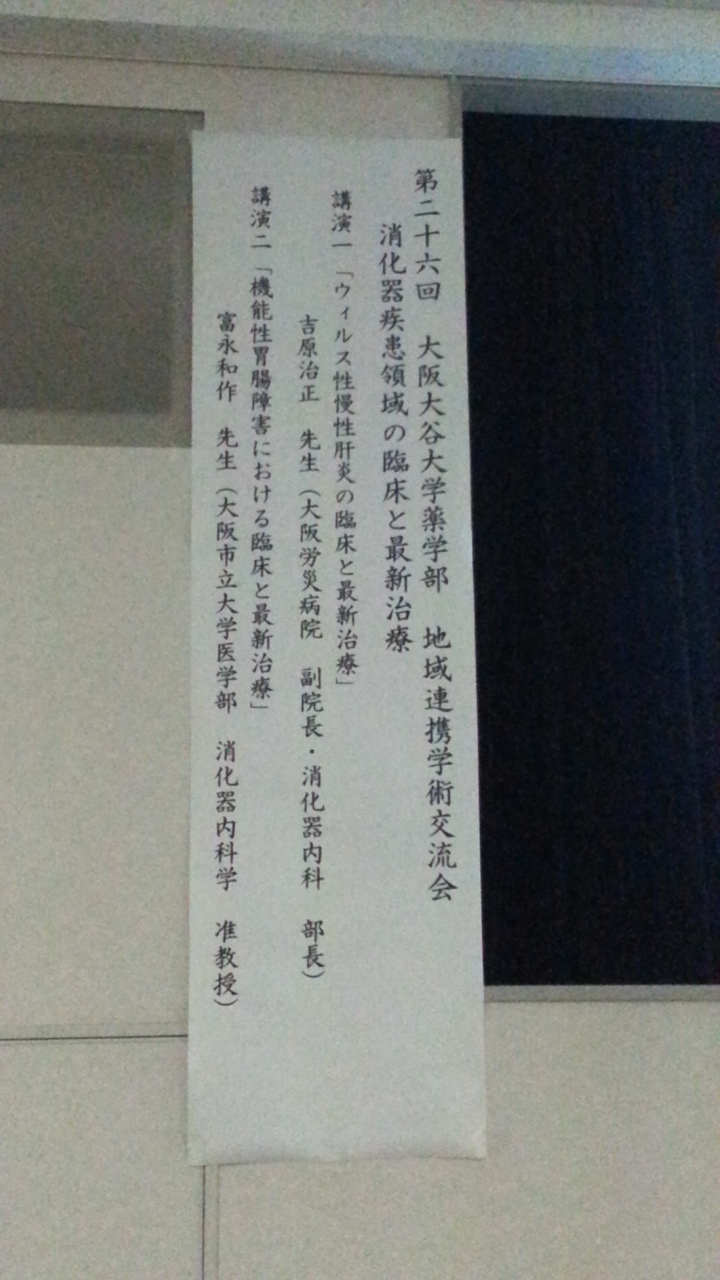 第二十六回　大阪大谷大学薬学部　地域連携学術交流会
消化器疾患領域の臨床と最新治療
講演一「ウィルス性慢性肝炎の臨床と最新治療」
吉原治正　先生（大阪労災病院　副院長・消化器内科　部長）
講演二「機能性胃腸障害における臨床と最新治療」
富永和作　先生（大阪市立大学医学部　消化器内科学　准教授）